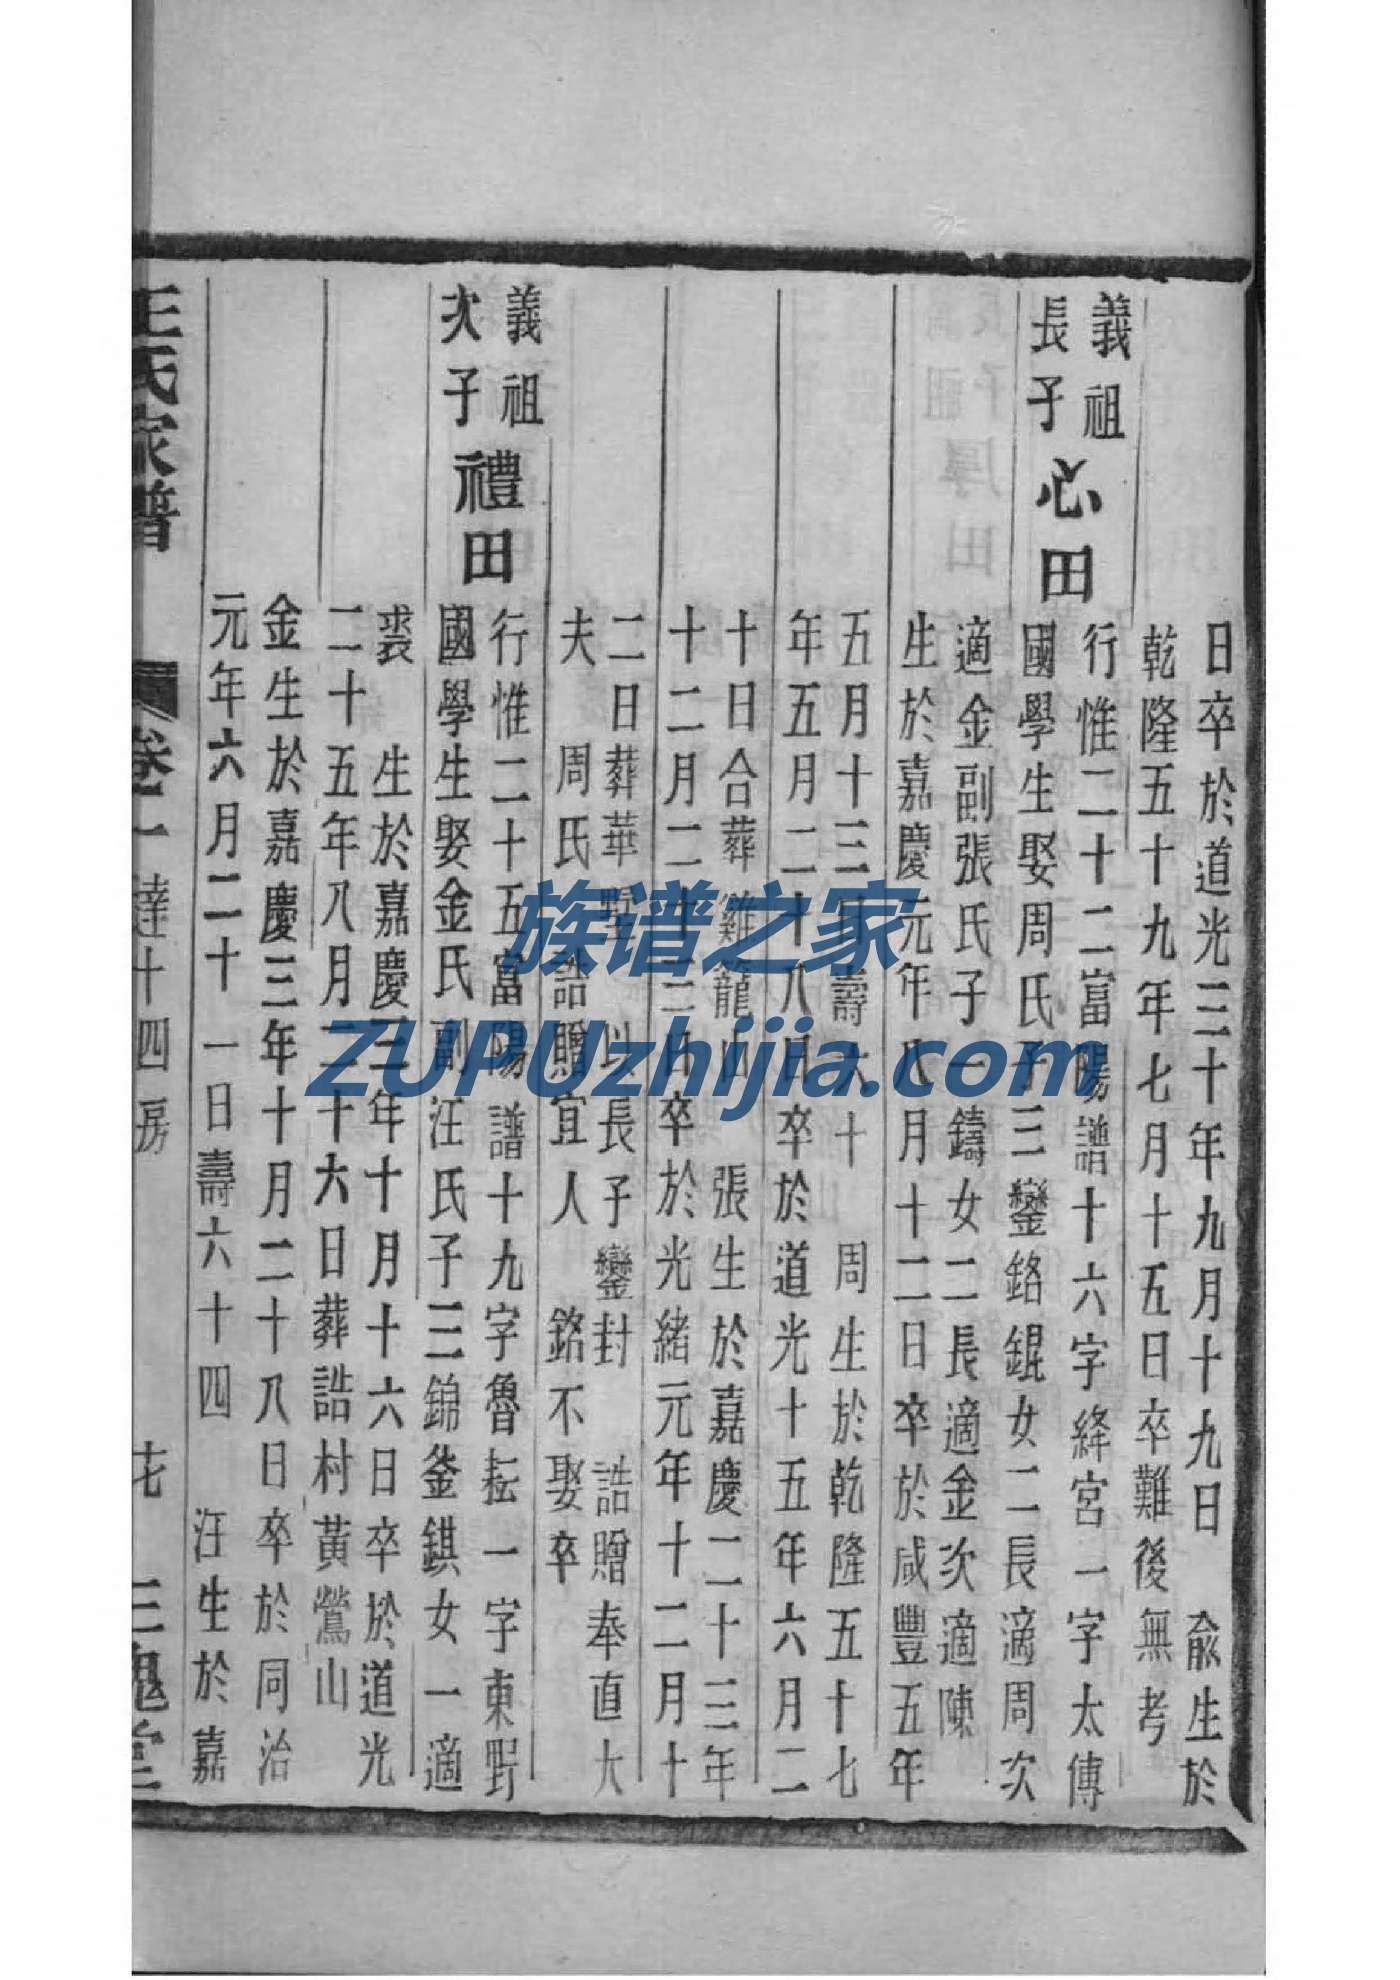 日卒於道光三十年九月十九日 俞生於
乾隆五十九年七月十五日卒難後無考
義祖
長子
心田
行惟二十二富陽譜十六字絳宮一字太傳
國學生娶周氏子三鑾鉻錕女二長適周次
適金副張氏子一鑄女二長適金次適陳
生於嘉慶元年八月十二日卒於咸豐五年
五月十三日壽六十 周生於乾隆五十七
年五月二十八日卒於道光十五年六月二
十日合葬雞籠山 張生於嘉慶二十三年
十二月二十三日卒於光緒元年十二月十
二日葬華墅 以長子鑾封 誥贈奉直大
夫 周氏誥贈宜人 銘不娶卒
義祖
次子
禮田
行惟二十五富陽譜十九字魯耘一字東野
國學生娶金氏副汪氏子三錦釡錤女一適
裘 生於嘉慶三年十月十六日卒於道光
二十五年八月二十六日葬誥村黃鶯山
金生於嘉慶三年十月二十八日卒於同治
元年六月二十一日壽六十四 汪生於嘉
王氏家譜
卷一 達十四房
七 三槐堂
族谱之家
ZUPUzhijia.com